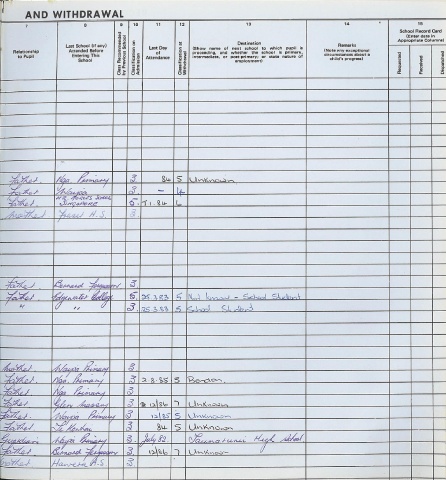 AND WITHDRAWAL
7 8 9 10 11 12 13 14 15
Relationship to Pupil
Last School (if any) Attended Before Entering This School
Class Recommended by Previous School
Classification on Admission
Last Day of Attendance
Classification at Withdrawal
Destination
(Show name of next school to which pupil is proceeding, and whether the school is primary, intermediate, or post-primary; or state nature of employment)
Remarks
(Note any exceptional circumstances about a child's progress)
School Record Card
(Enter date in Appropriate Columns)
Requested
Received
Despatched
Father Nga. Primary 3 84 5 Unknown
Father 3 - 4
Father Singapore 5 84 6
Mother H.S. 3
Father Bernard Fergusson 3
Father Edgewater College 5 25 3 83 5 - School Student
" " 3 25 3 83 5 School Student
Mother Waipa Primary 3
Father Nga. Primary 3 2-8-85 5
Father Nga Primary 3
Father Glen Massey 3 12/86 7 Unknown
Father Waipa Primary 3 12/85 5 Unknown
Father Te Kauhau 3 84 5 Unknown
Guardian Waipa Primary 3 July 83 Taumarunui High School
Father Bernard Fergusson 3 12/86 7 Unknown
Father Hawera A.S 3